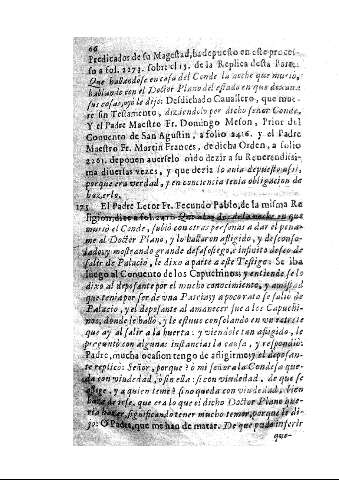 66
Predicador de su Magestad, ha depuesto en este proces-
so a fol. 2273. sobre el 15. de la Replica desta Parte:
Que hallandose en casa del Conde la noche que murió,
hablando con el Doctor Plano del estado en que dexaua
sus cosas, oyo le dijo: Desdichado Cauallero, que mue-
re sin Testamento, diziendolo por dicho señor Conde.
Y el Padre Maestro Fr. Domingo Meson, Prior del
Conuento de San Agustin, a folio 2416. y el Padre
Maestro Fr. Martin Frances, de dicha Orden, a folio
2261. deponen auerselo oido dezir a su Reuerendissi-
ma diuersas vezes, y que dezir lo auia depuesto assi,
porque era verdad, y en conciencia tenia obligacion de
hazerlo.
123 El Padre Letor Fr. Fecundo Pablo, de la misma Re
ligion, dize a fol. 2411. Que la noche en que
murió el Conde, subió con otras personas a dar el pesa-
me al Doctor Plano, y lo hallaron afligido, y desconso-
lado, y mostrando grande desasossiego, e insuito deseo de
salir de Palacio, le dixo a parte a este Testigo: Se iba
luego al Conuento de los Capuchinos: y entiende se lo
dixo al deponente por el mucho conocimiento, y amistad
que tenia por ser de vna Patria; y a poco rato se salio de
Palacio, y el deposante al amanecer fue a los Capuchi-
nos, donde le halló, y le estuuo consolando en vn retrete
que ay al salir a la huerta: y viendole tan afligido, le
preguntó con algunas instancias la causa, y respondió:
Padre, mucha ocasion tengo de afligirme: y el deposan-
te replicó: Señor, porque? ò mi señora la Condesa que-
da con viudedad, ò sin ella: si con viudedad, de que se
aflige, y a quien teme? si no queda con viudedad, bien
haze de irse. que era lo que el dicho Doctor Plano que-
ria hazer, significando tener mucho temor, porque le di-
jo: O Padre, que me han de matar. De que pudo inserir
que-